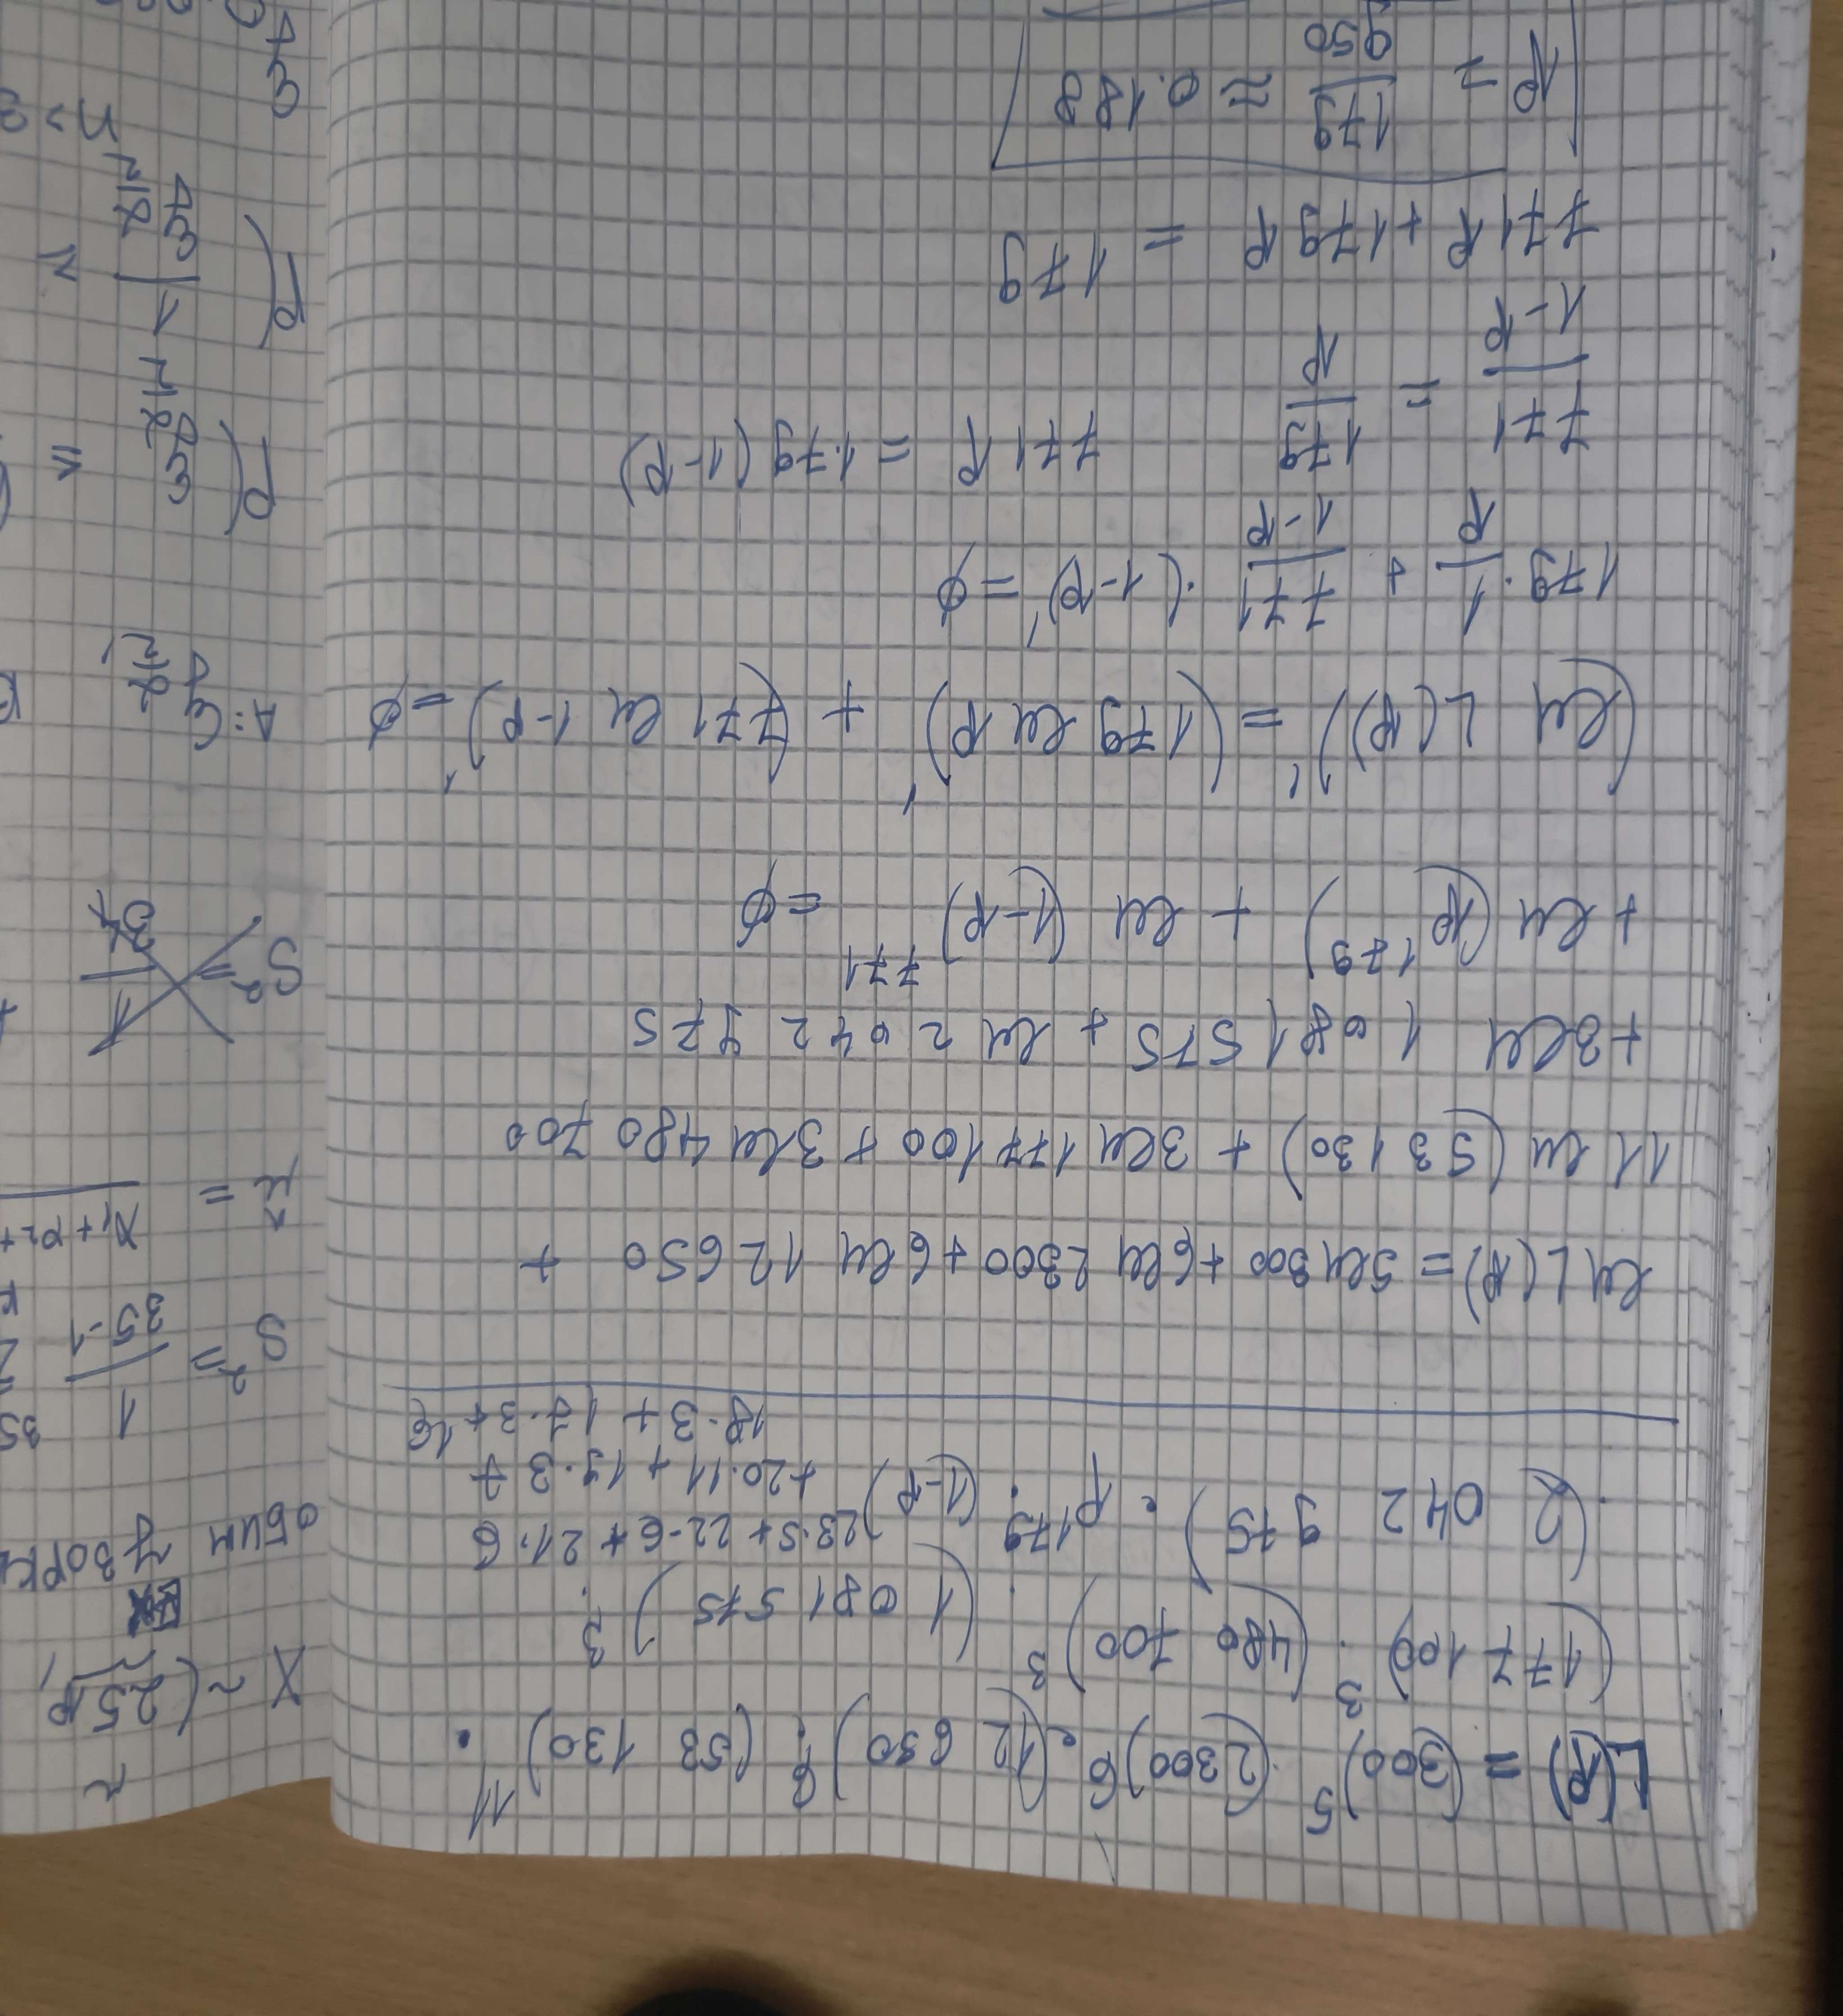 L(p) = (300)^5 · (2300)^6 · (12 650)^6 · (53 130)^11 ·
(177 100)^3 · (480 700)^3 · (1 081 575)^3 ·
· (2 042 975) · p^179 · (1-p)^{23·5 + 22·6 + 21·6
+20·11 + 19·3 +
18·3 + 17·3 + 16}
ln L(p) = 5ln300 + 6ln 2300 + 6ln 12650 +
11 ln (53 130) + 3ln 177100 + 3ln 480 700
+3ln 1 081 575 + ln 2 042 975
+ ln (p^179) + ln (1-p)^771 = ∅
(ln L(p))' = (179 ln p)' + (771 ln 1-p)' = ∅
179 · 1/p + 771/(1-p) · (1-p)' = ∅
771/(1-p) = 179/p 771 p = 179 (1-p)
771p + 179p = 179
p = 179/950 ≈ 0.188
X ~ (25, p,
S² = 1/(35-1)
S² =
A: